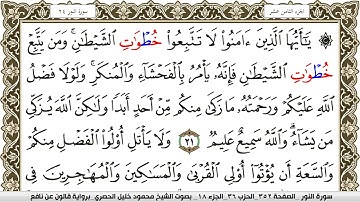 الجزء الثامن عشر سورة النور ٢٤
۞ يَـٰٓأَيُّهَا ٱلَّذِينَ ءَامَنُوا۟ لَا تَتَّبِعُوا۟ خُطْوَٰتِ ٱلشَّيْطَـٰنِۚ وَمَن يَتَّبِعْ
خُطْوَٰتِ ٱلشَّيْطَـٰنِ فَإِنَّهُۥ يَأْمُرُ بِٱلْفَحْشَآءِ وَٱلْمُنكَرِۚ وَلَوْلَا فَضْلُ
ٱللَّهِ عَلَيْكُمْ وَرَحْمَتُهُۥ مَا زَكَىٰ مِنكُم مِّنْ أَحَدٍ أَبَدًا وَلَـٰكِنَّ ٱللَّهَ يُزَكِّى
مَن يَشَآءُۗ وَٱللَّهُ سَمِيعٌ عَلِيمٌ ٢١ وَلَا يَأْتَلِ أُو۟لُوا۟ ٱلْفَضْلِ مِنكُمْ
وَٱلسَّعَةِ أَن يُؤْتُوٓا۟ أُو۟لِى ٱلْقُرْبَىٰ وَٱلْمَسَـٰكِينَ وَٱلْمُهَـٰجِرِينَ فِى
سورة النور الصفحة ٣٥٢ الحزب ٣٦ الجزء ١٨ بصوت الشيخ محمود خليل الحصري برواية قالون عن نافع